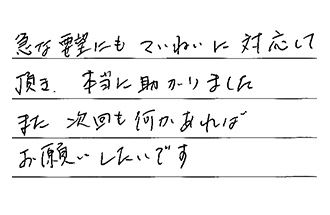 急な要望にもていねいに対応して
頂き、本当に助かりました
また次回も何かあれば
お願いしたいです